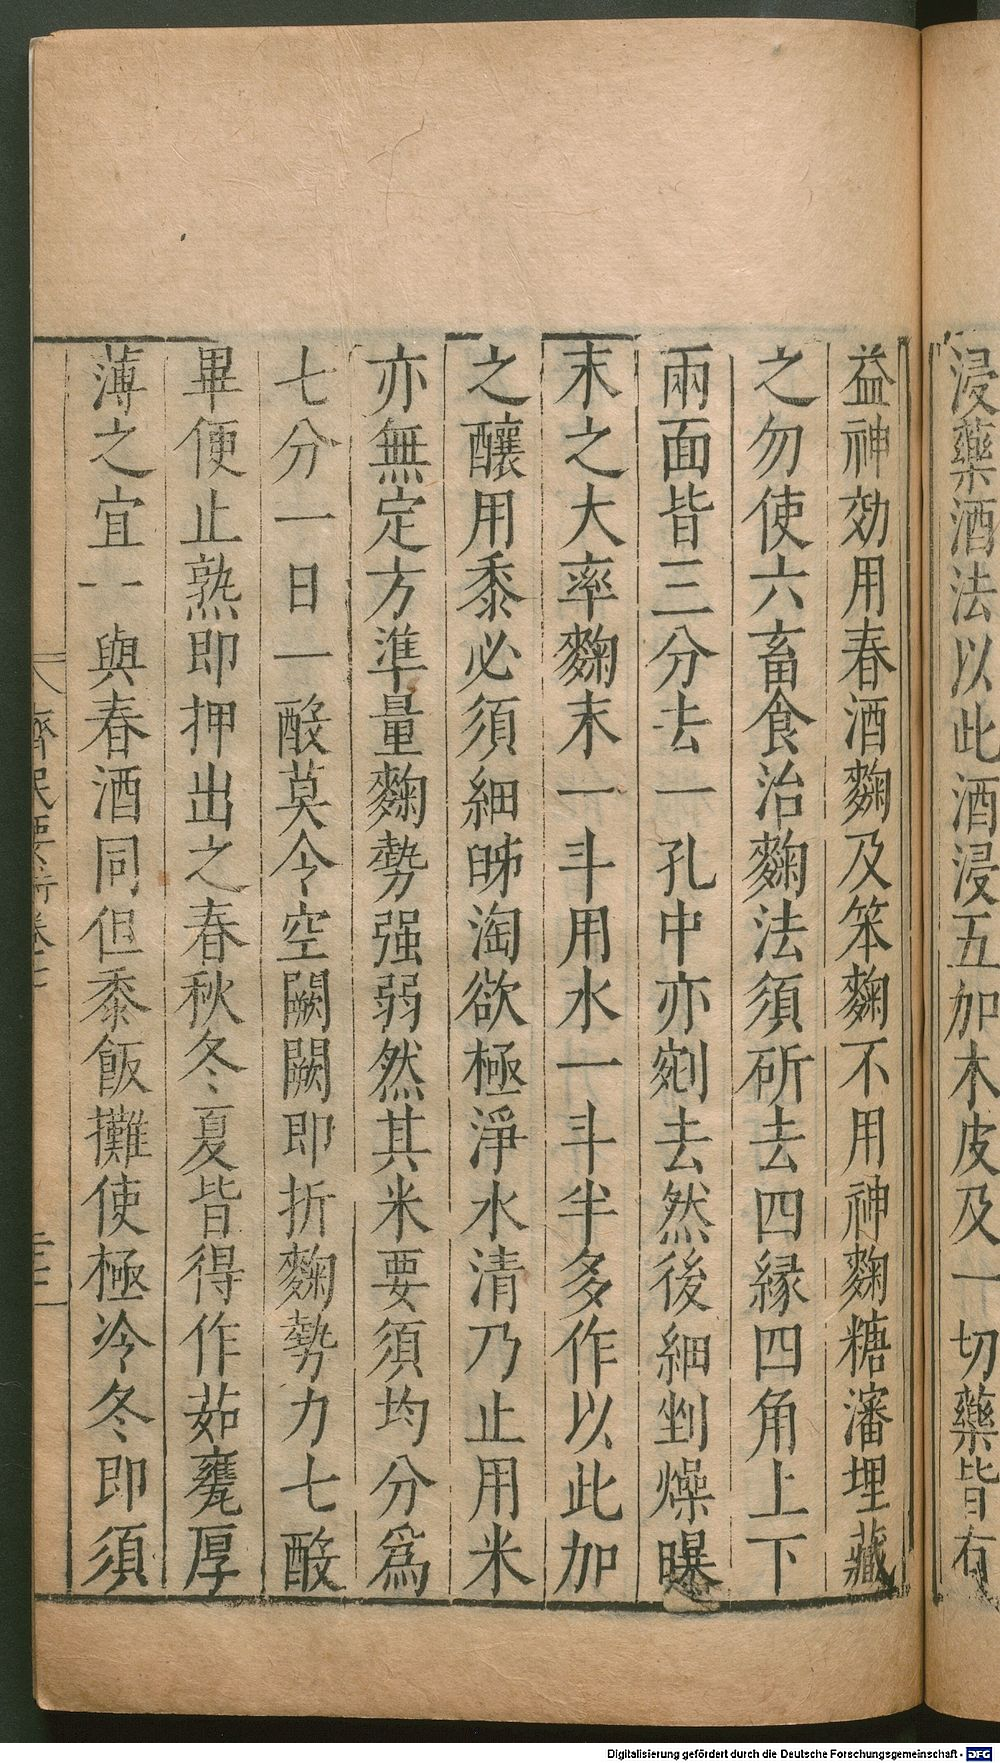 浸藥酒法以此酒浸五加木皮及一切藥皆有
益神効用春酒麴及笨麴不用神麴糖瀋埋藏
之勿使六畜食治麴法須斫去四縁四角上下
兩面皆三分去一孔中亦剜去然後細剉燥曝
末之大率麴末一斗用水一斗半多作以此加
之釀用黍必須細𦗔淘欲極淨水清乃止用米
亦無定方準量麴勢强弱然其米要須均分為
七分一日一酘莫令空闕闕即折麴勢力七酘
畢便止熟即押出之春秋冬夏皆得作茹甕厚
薄之宜一與春酒同但黍飯攤使極冷冬即須
齊民要術卷七
Digitalisierung gefördert durch die Deutsche Forschungsgemeinschaft - DFG